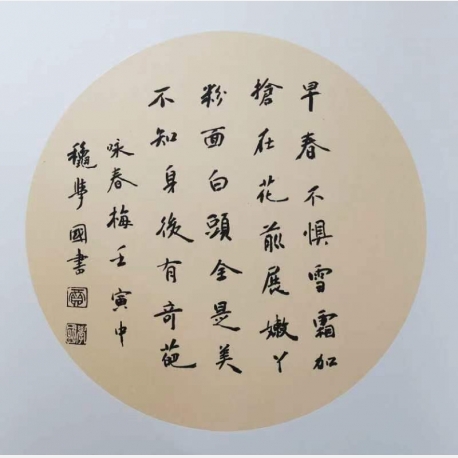 早春不惧雪霜加
搶在花前展嫩丫
粉面白頭全是美
不知身後有奇葩
咏春梅壬寅中
國書